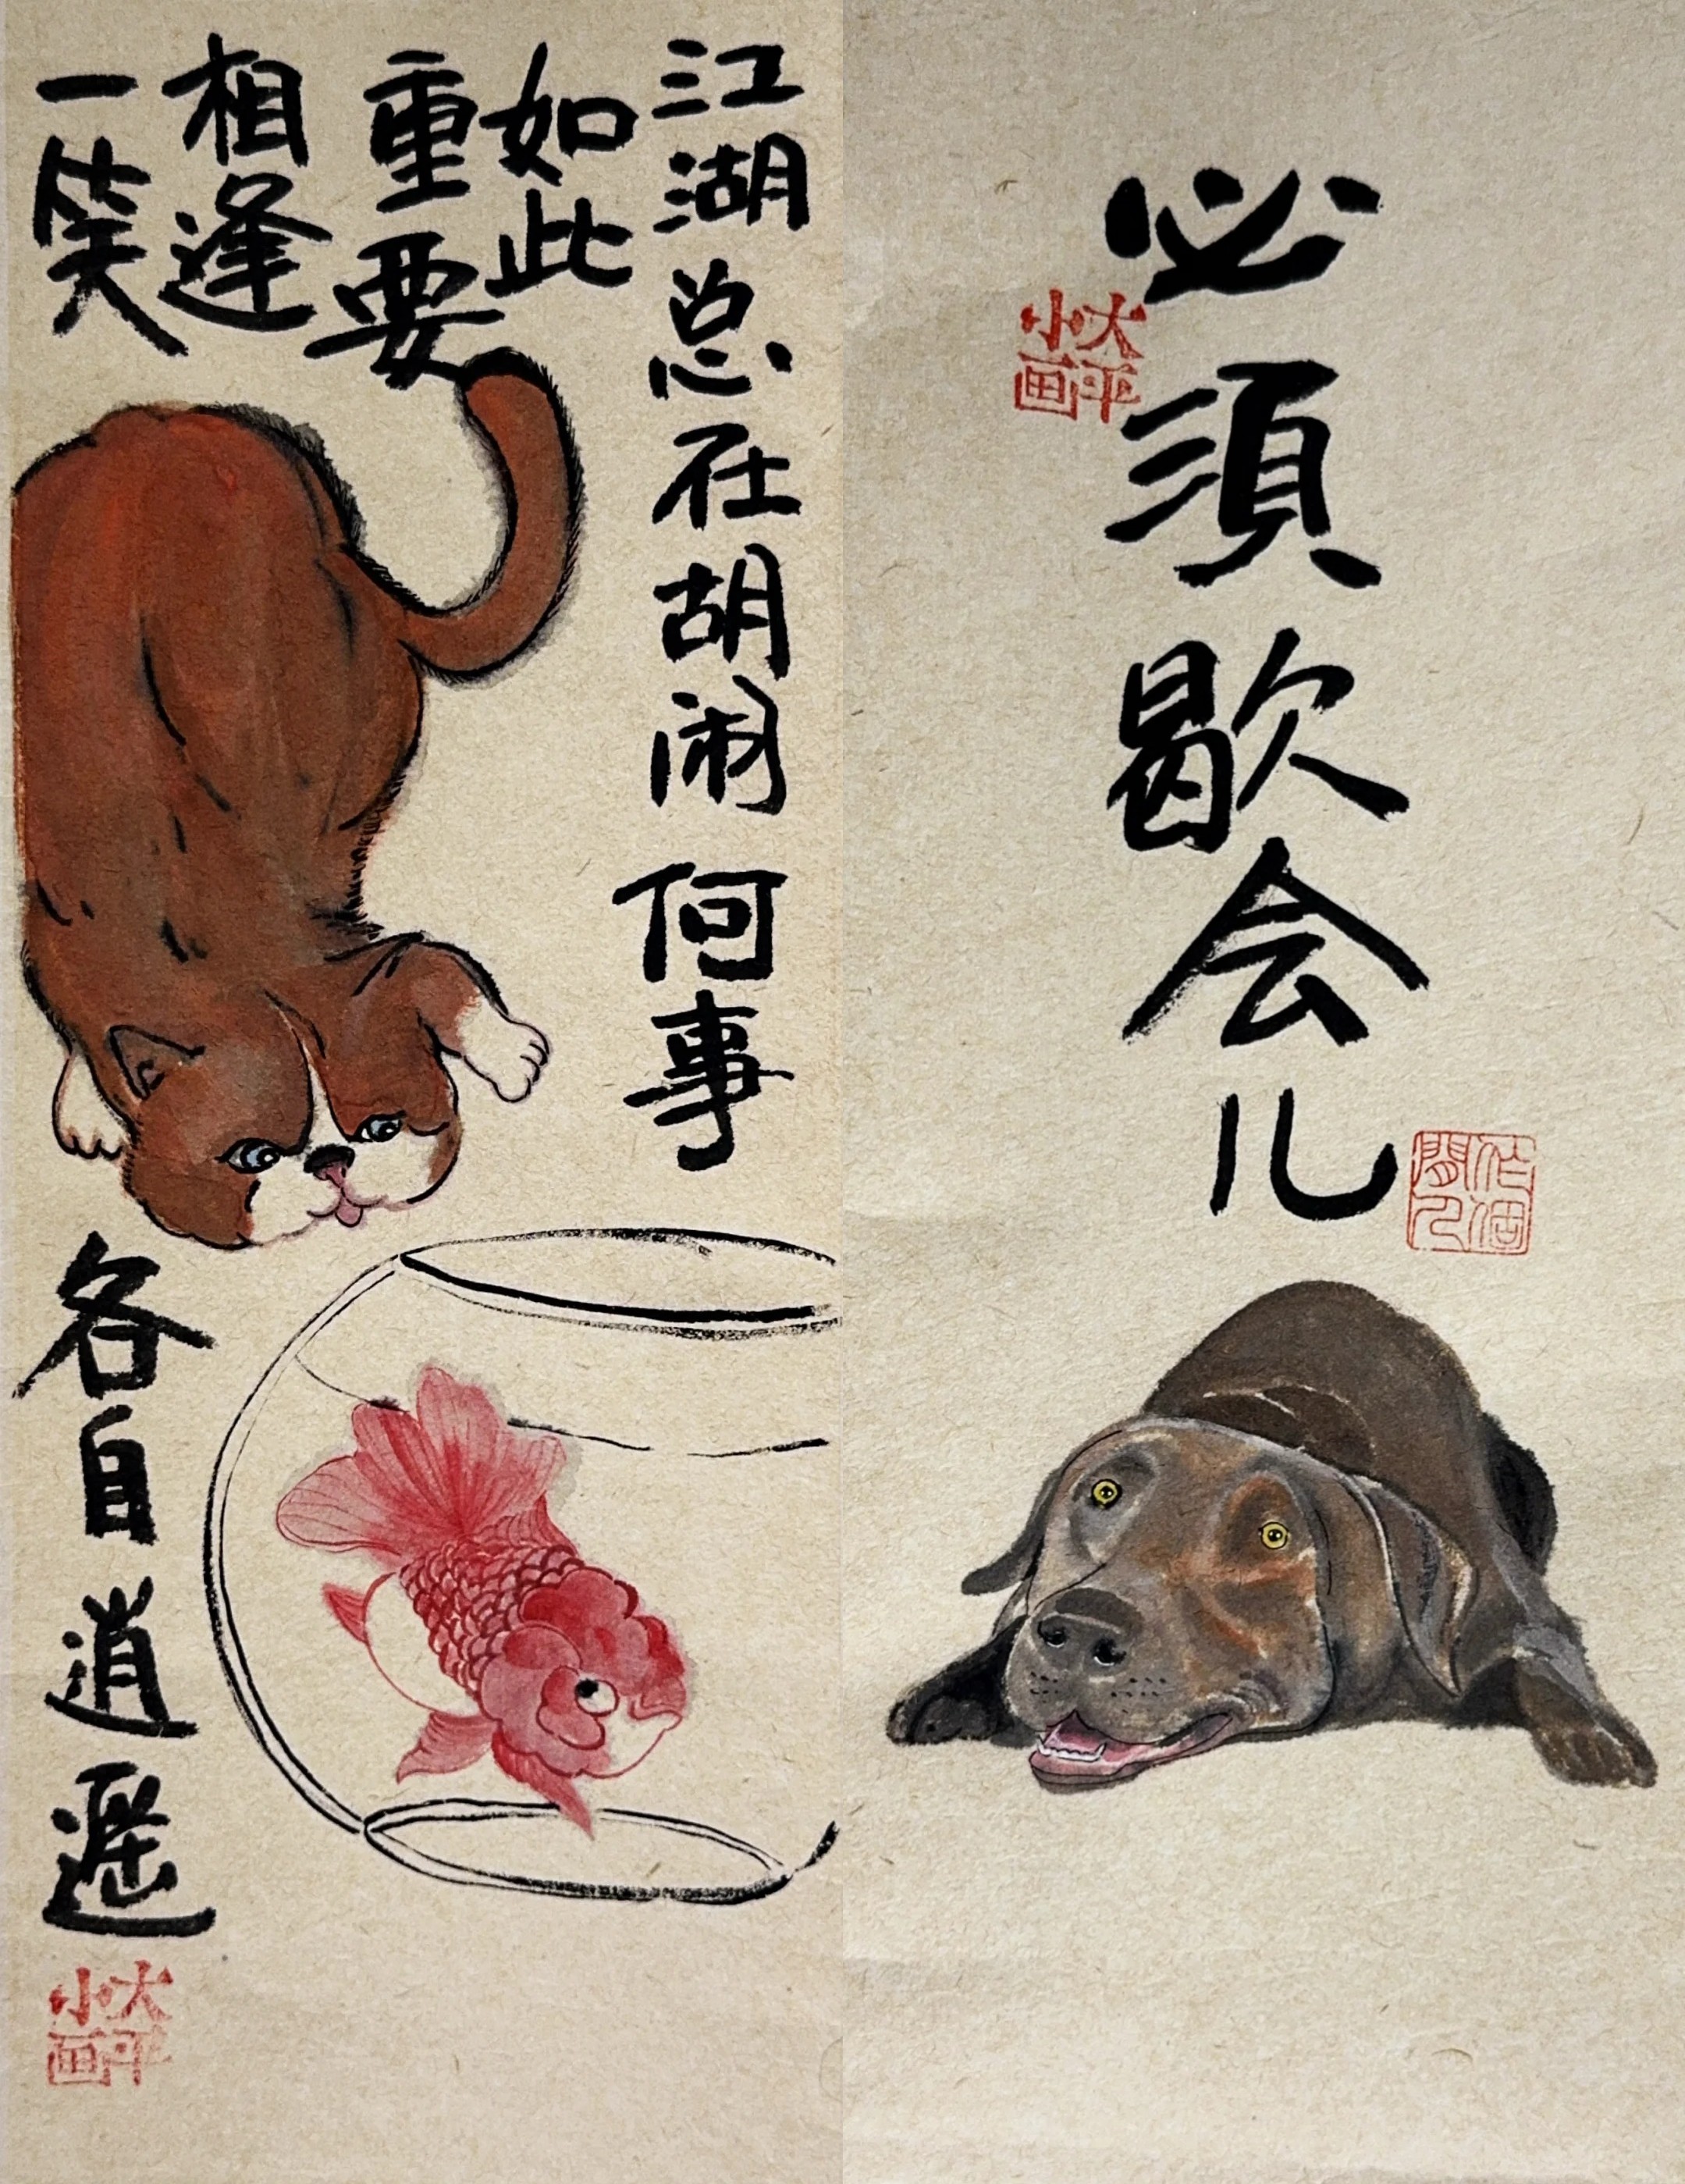 江湖总在胡闹 何事
如此
重要
相逢
一笑
各自逍遥
大平
小画
必須歇会儿
大平
小画
作個
閒人